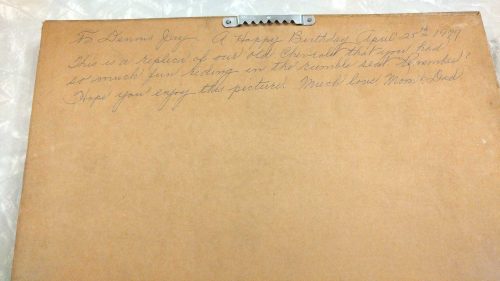 To Dennis Jay A Happy Birthday April 25th 1979
This is a replica of our old Chevrolet that you had
so much fun riding in the rumble seat Remember?
Hope you enjoy this picture. Much love Mom & Dad